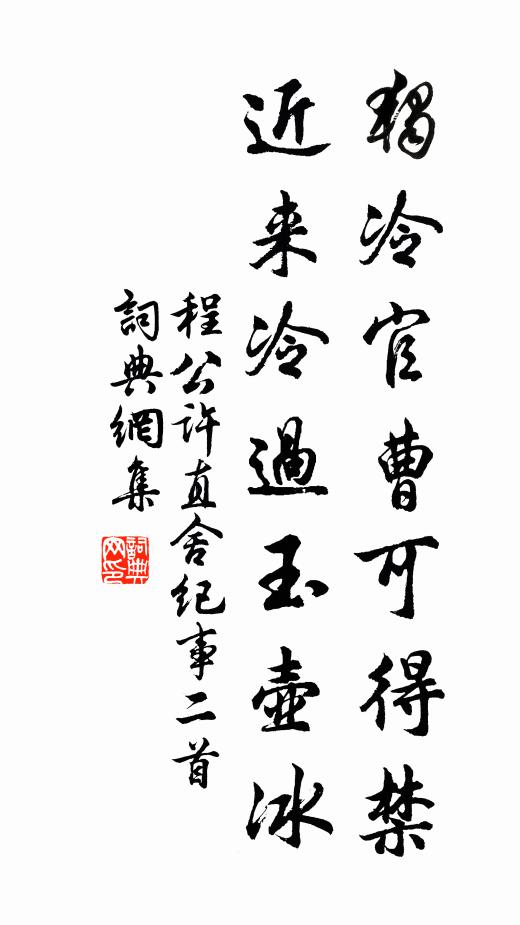 獨冷官曹可得禁
近来冷過玉壺冰
程公許直舍紀事二首
詞典網集
詞典網印